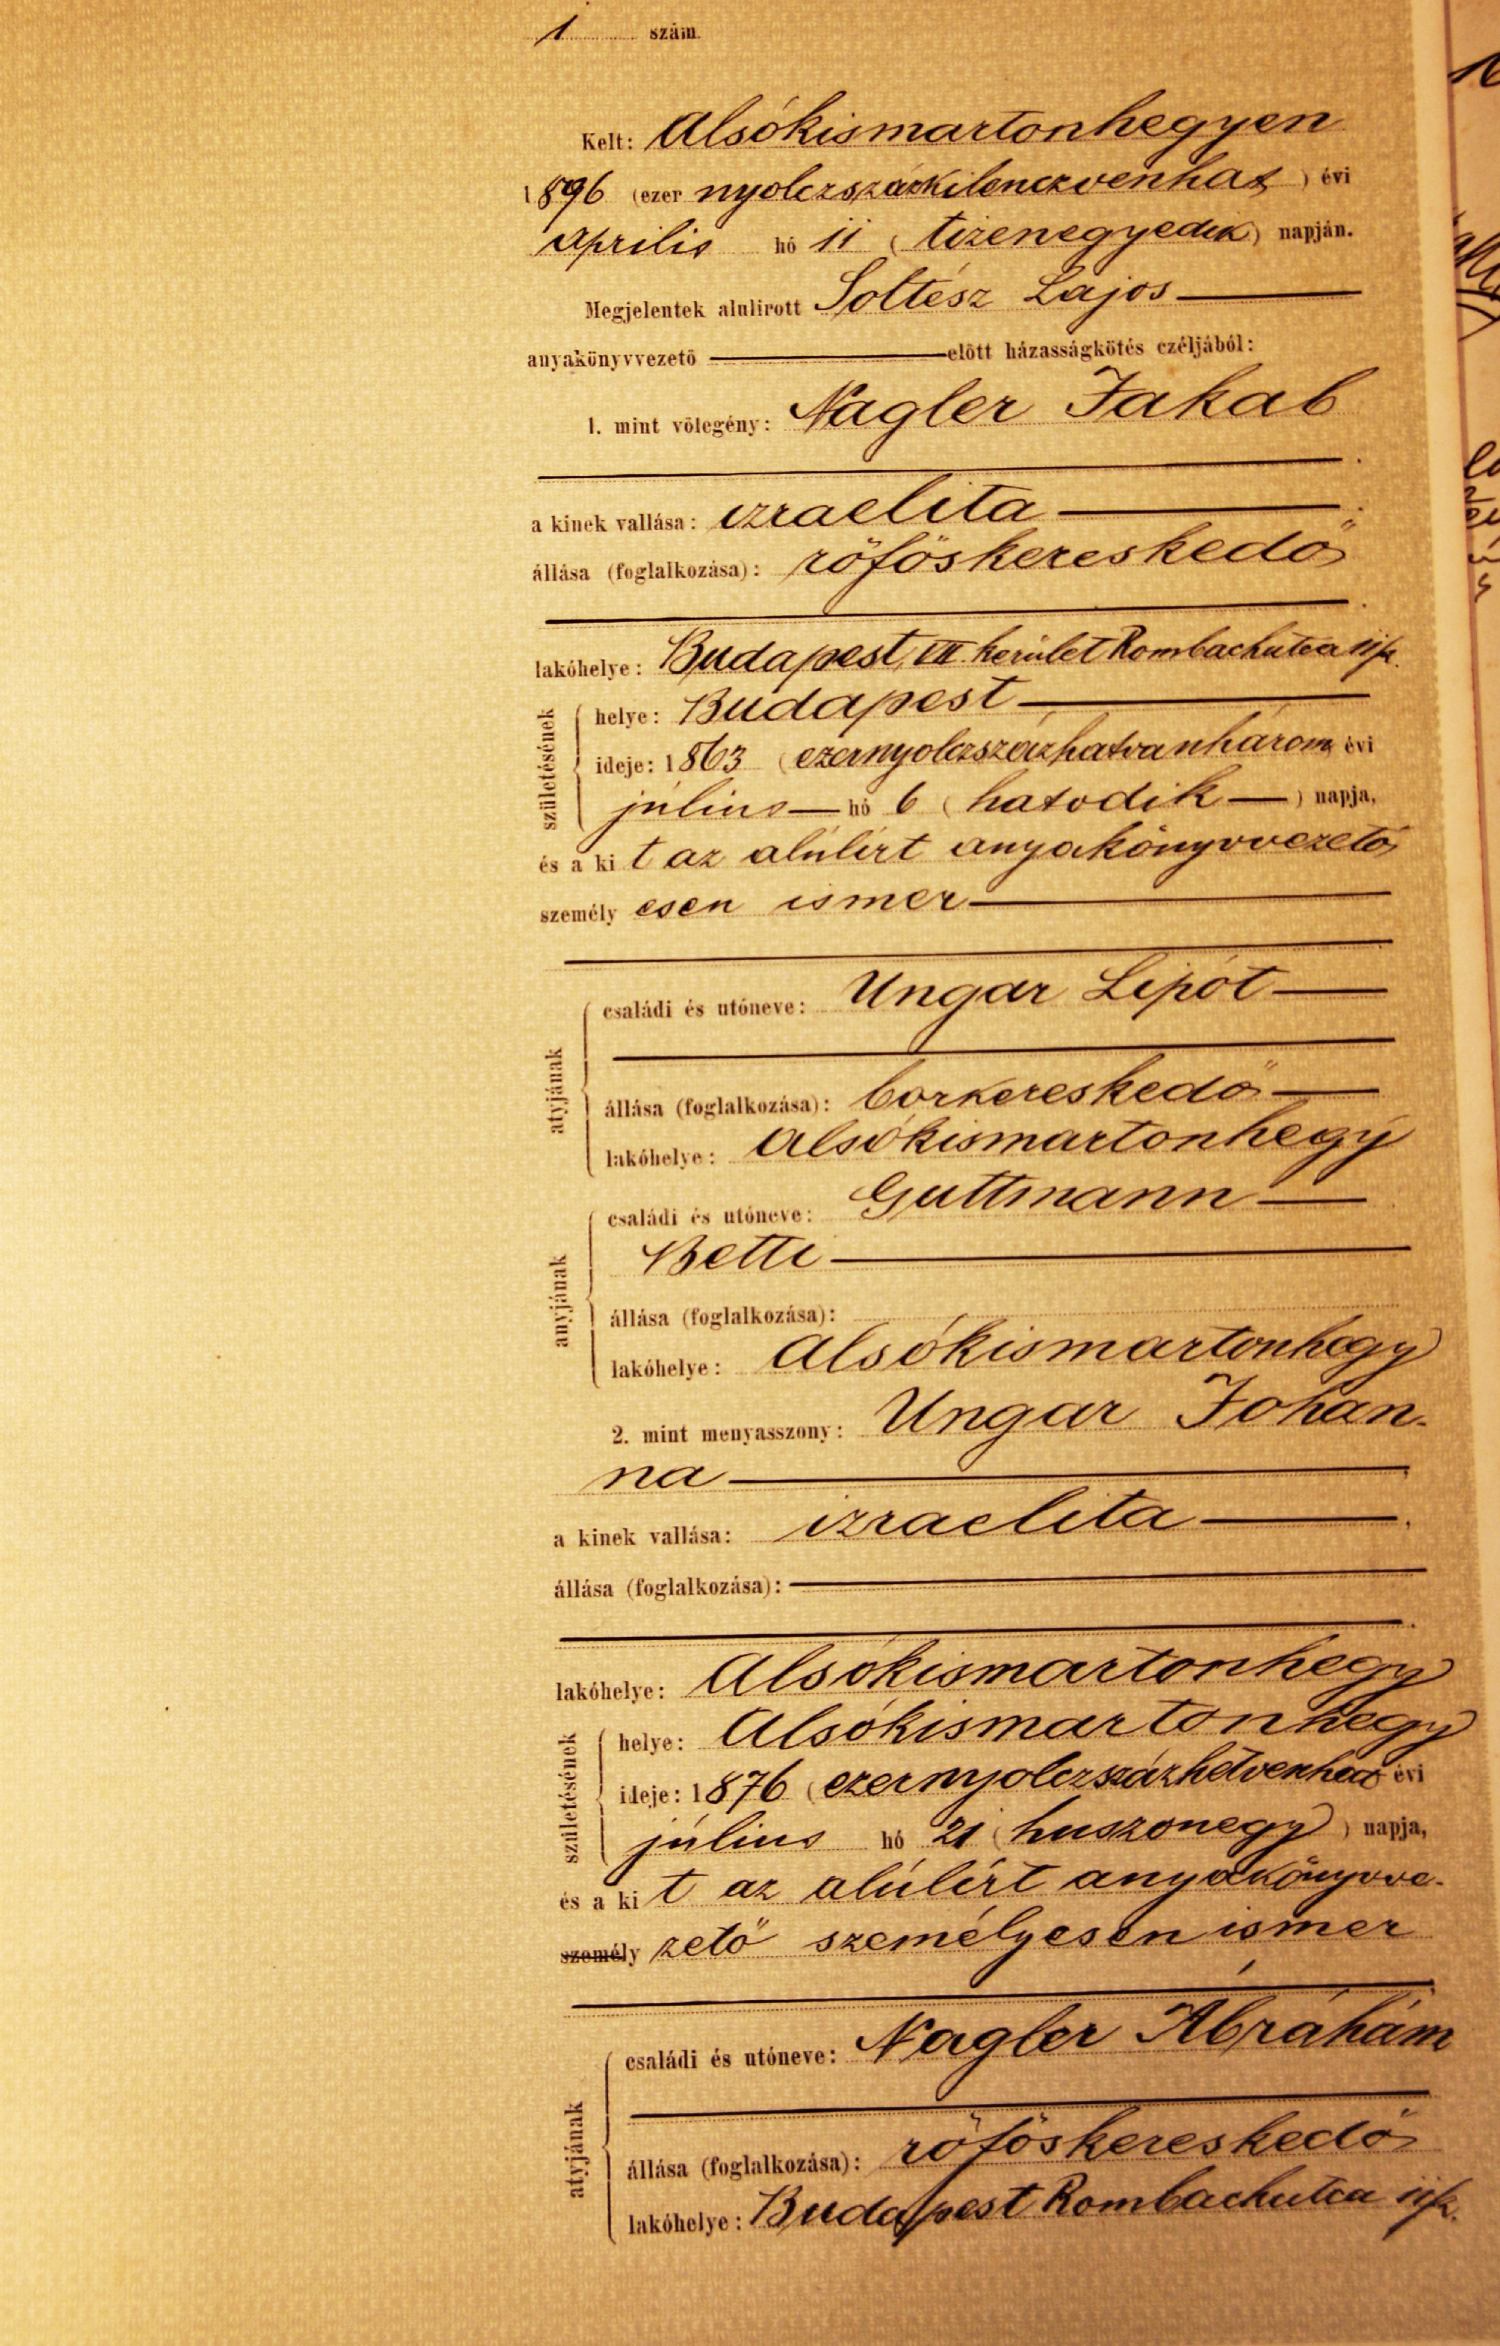 1 szám.
Kelt: Alsókismartonhegyen
1896 (ezer nyolczszázkilenczvenhat ) évi
április hó 11 ( tizenegyedik ) napján.
Megjelentek alulirott Soltész Lajos
anyakönyvvezető előtt házasságkötés czéljából:
1. mint vőlegény: Nagler Jakab
a kinek vallása: izraelita
állása (foglalkozása): rőföskereskedő
lakóhelye: Budapest, VII. kerület Rombachutca
születésének
helye: Budapest
ideje: 1863 (ezernyolczszázhatvanhárom évi
július hó 6 ( hatodik ) napja,
és a ki t az alúlírt anyakönyvvezető
személy esen ismer
atyjának
családi és utóneve: Ungar Lipót
állása (foglalkozása): borkereskedő
lakóhelye: Alsókismartonhegy
anyjának
családi és utóneve: Guttmann
Betti
állása (foglalkozása):
lakóhelye: Alsókismartonhegy
2. mint menyasszony: Ungar Johan-
na
a kinek vallása: izraelita
állása (foglalkozása):
lakóhelye: Alsókismartonhegy
születésének
helye: Alsókismartonhegy
ideje: 1876 (ezernyolczszázhetvenhat évi
július hó 21 (huszonegy ) napja,
és a ki t az alúlírt anyakönyvve-
személy zető személyesen ismer
atyjának
családi és utóneve: Nagler Ábrahám
állása (foglalkozása): rőföskereskedő
lakóhelye: Budapest Rombachutca